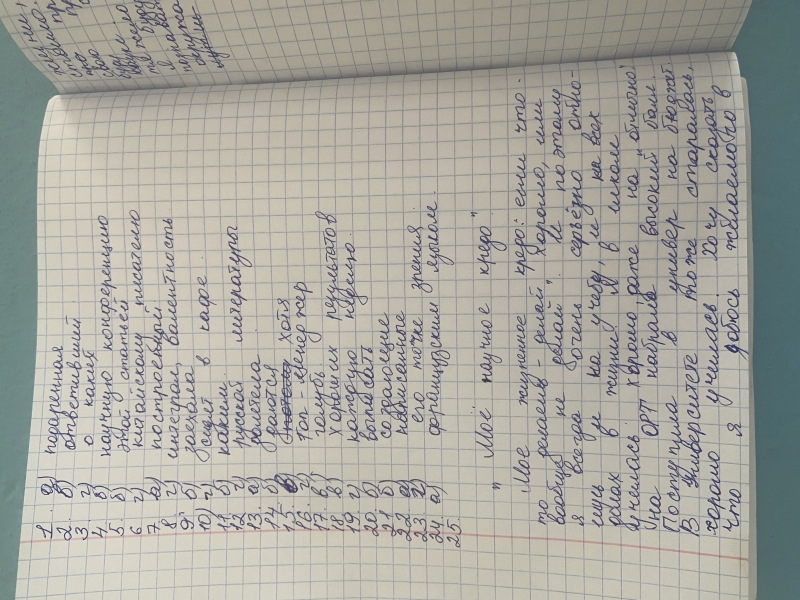 1. а) подаренная
2. б) ответивший
3. г) о какой
4. в) научную конференцию
5. б) этой статьей
6. г) китайскому писателю
7. а) построенный
8. г) интеграл, валентность
9. б) заехала
10) г) сидит в кафе.
11. б) каким
12. г) русской литературы
13. а) долетела
14. б) даются
15. в) хотя
16. г) топ-менеджер
17. в) голубь
18. в) хороших результатов
19. г) каждую неделю.
20. б) выписать
21. б) создающие
22. а) написанные
23. г) его точке зрения.
24. а) французским языком.
25.
"Моё научное кредо"
Мое жизненное кредо: если что-
то делаешь - делай хорошо, или
вообще не делай". И поэтому
я всегда очень серьёзно отно-
шусь и на учебу, и на всех
делах в жизни. Я в школе
училась хорошо даже на "отлично"
На ОРТ набрала высокий балл.
Поступила в универ на бюджет.
В университете я тоже старалась,
хорошо училась. Хочу сказать
что я добьюсь желаемого в